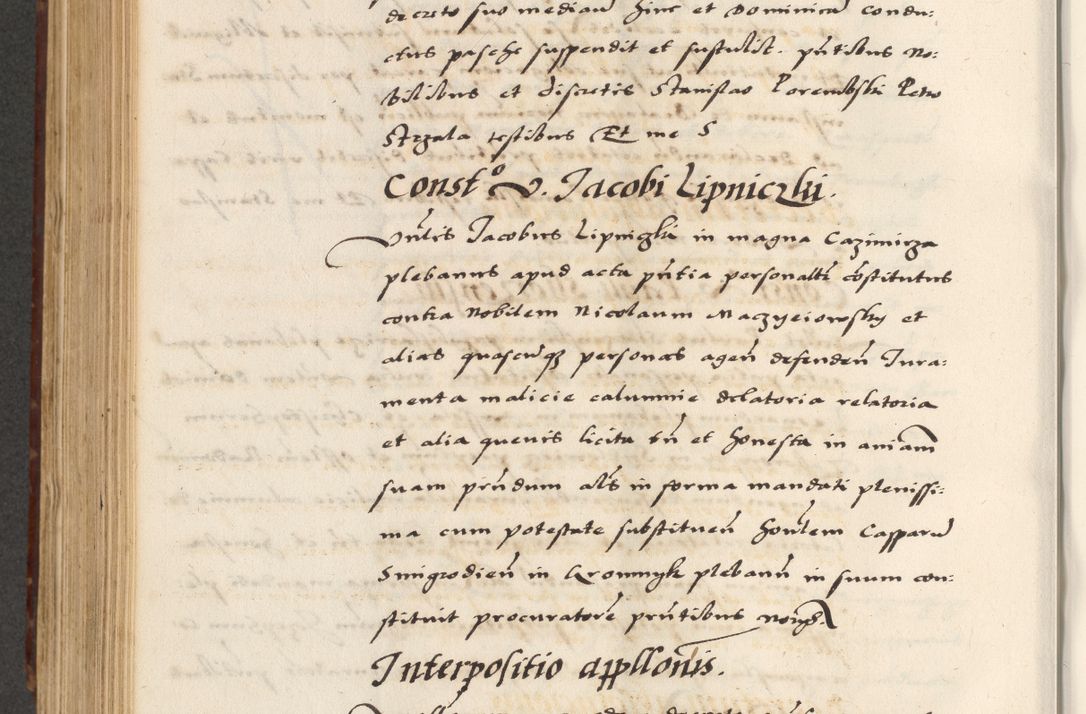 decreto suo mediam hinc et Dominicam condu:
ctus pasche suspendit et sustulit. pñtibus No:
bilibus et discretis Stanislao Porembski Petro
Strzala testibus Et me S
Constº V. Jacobi Lipniczki.
Vñlis Jacobus Lipniczki in magna Cazimirza
plebanus apud acta pñtia personaltr cõstitutus
contra Nobilem Nicolaum Maczyeiowsky et
alias quascũqz personas ageñ defendeñ Jura:
menta malicie calumnie delatoria relatoria
et alia quevis licita tñ et honesta in aniam
suam prñdum als in forma mandati plenissi:
ma cum potestate substitueñ honlem Casparũ
Smigrodieñ in Kromnyk plebanñ in suum con:
stituit procuratorẽ prñtibus
Interpositio appllonis.